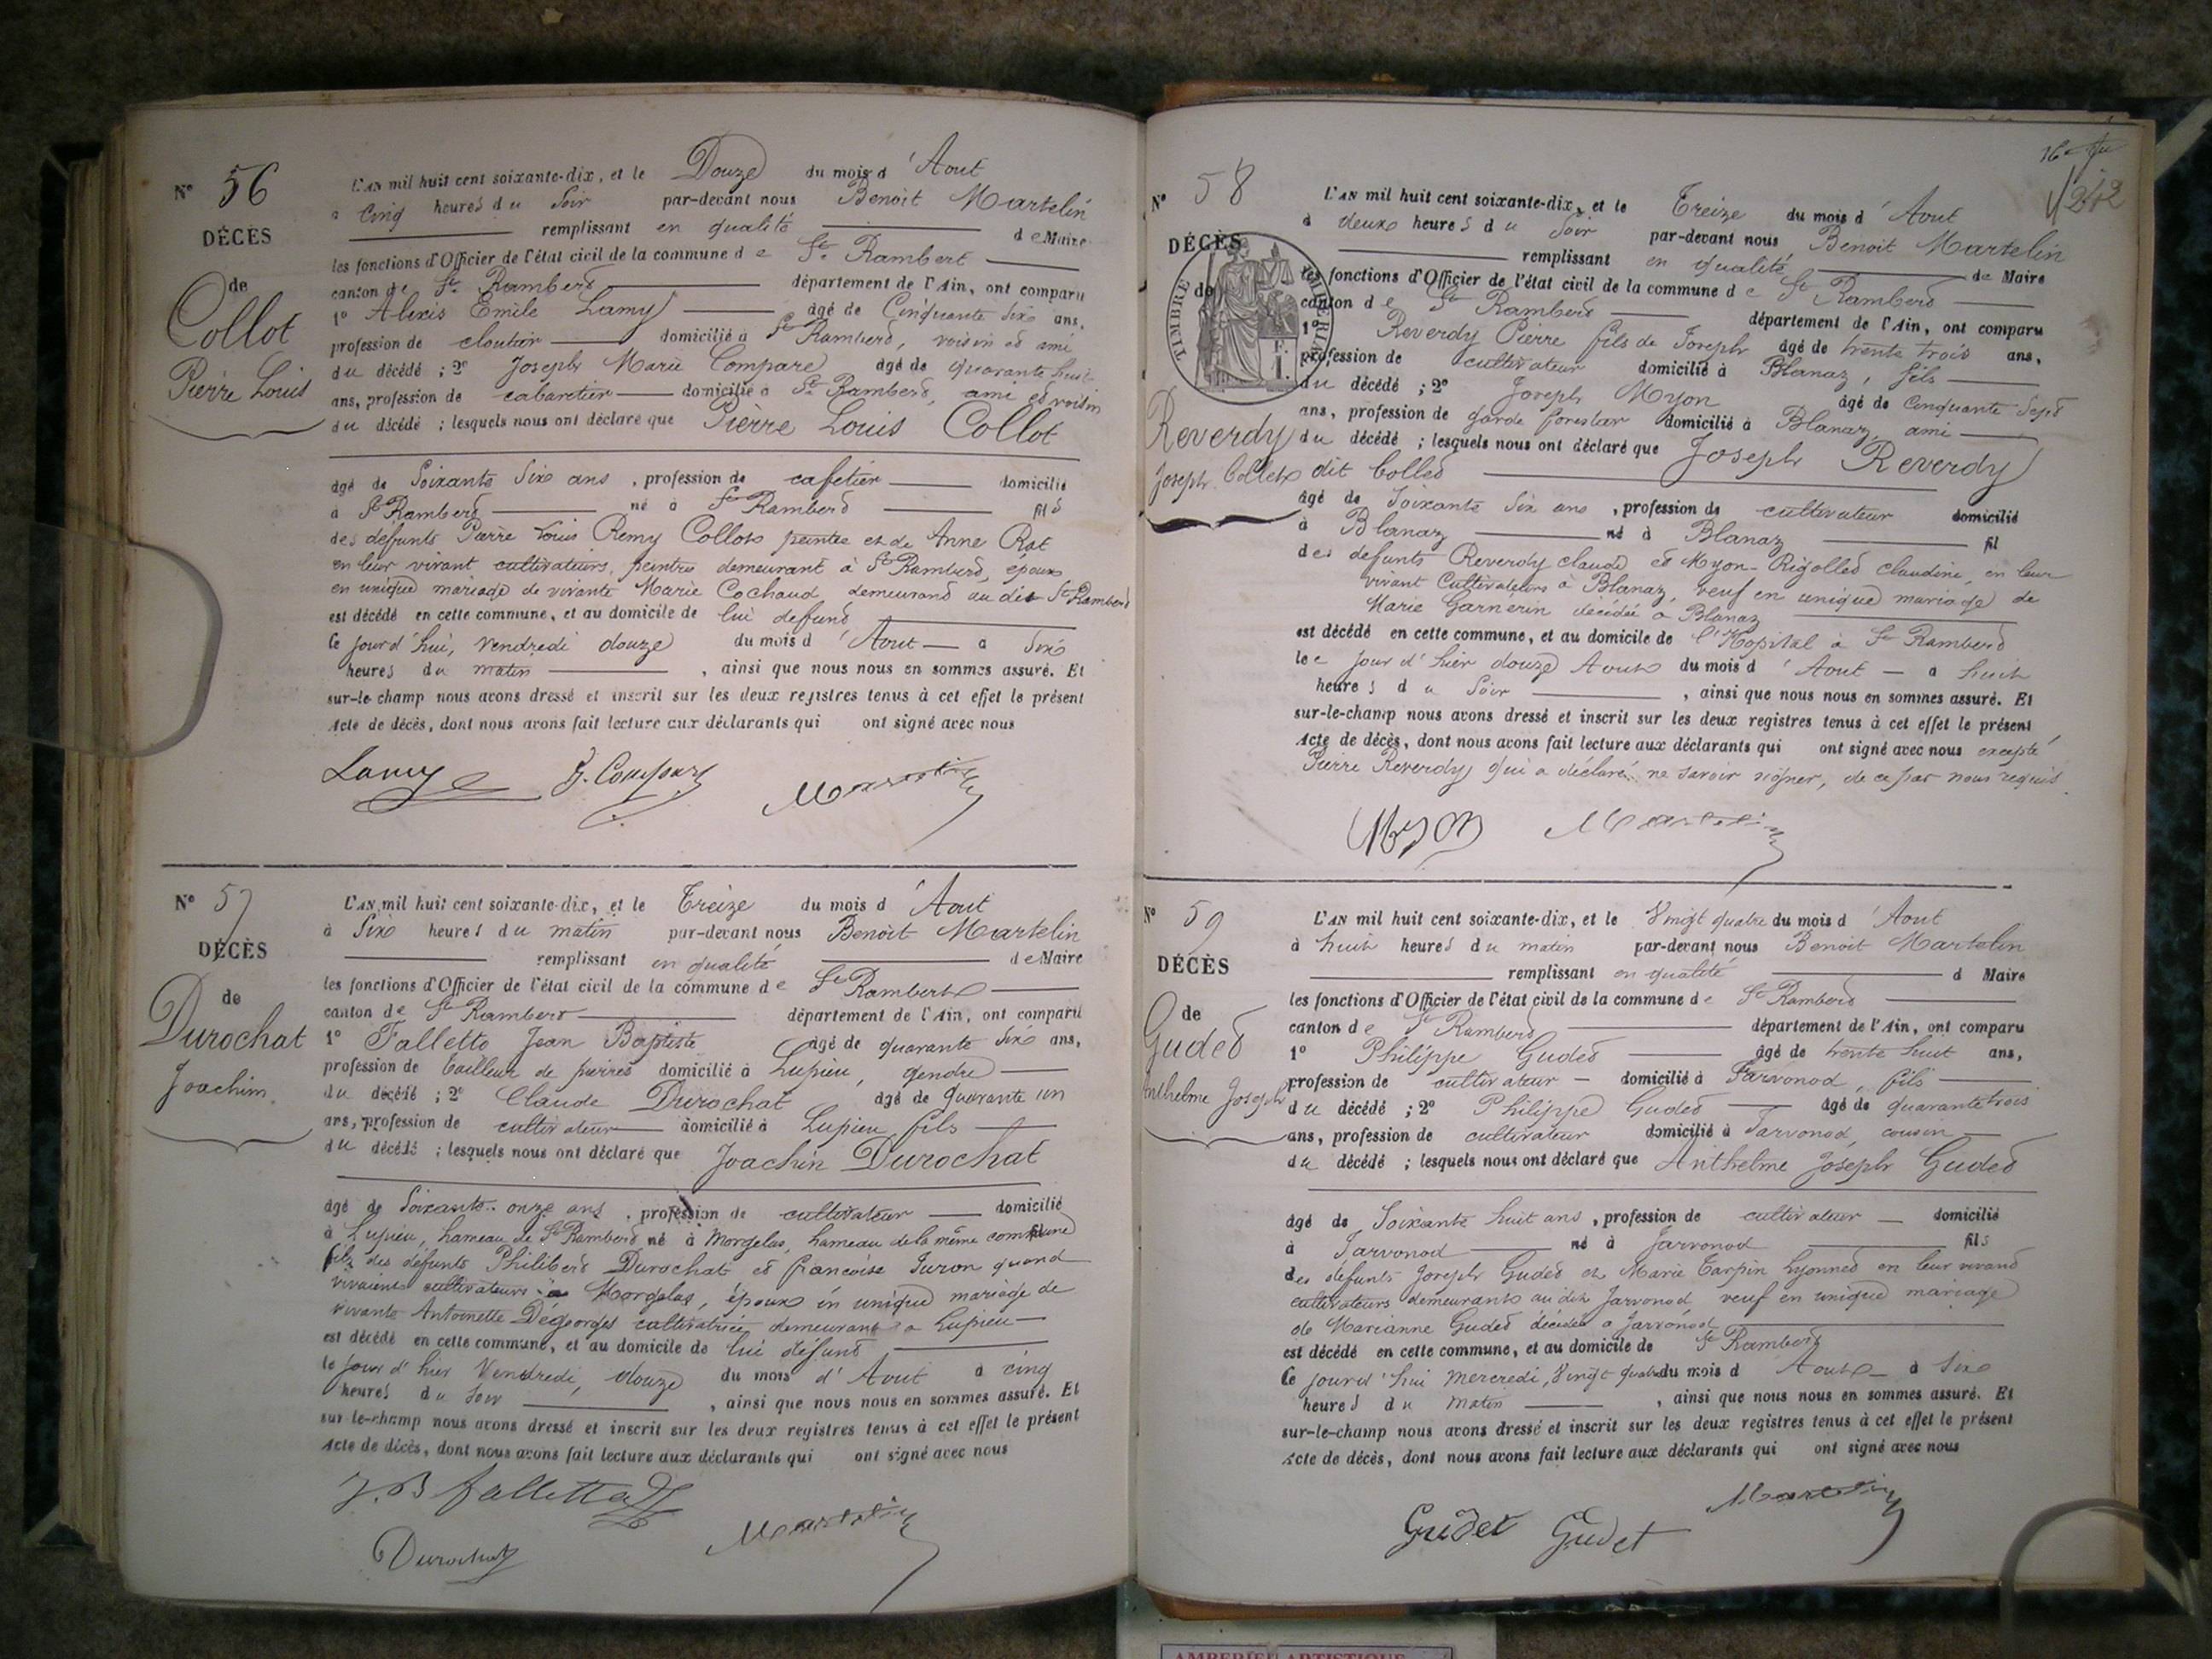 N° 56
DÉCÈS
de
Collot
Pierre Louis
L'AN mil huit cent soixante-dix, et le Douze du mois d'Aout
a Cinq heures du Soir par-devant nous Benoit Martelin
remplissant en qualité de Maire
les fonctions d'Officier de l'état civil de la commune de St Rambert
canton de St Rambert département de l'Ain, ont comparu
1° Alexis Emile Lamy âgé de Cinquante Six ans,
profession de cloutier domicilié à St Rambert, voisin et ami
du décédé ; 2° Joseph Marie Compare âgé de quarante huit
ans, profession de cabaretier domicilié à St Rambert, ami et voisin
du décédé ; lesquels nous ont déclaré que Pierre Louis Collot
âgé de Soixante Six ans, profession de cafetier domicilié
à St Rambert né à St Rambert fils
des défunts Pierre Louis Remy Collot peintre et de Anne Rat
en leur vivant cultivateurs, peintre demeurant à St Rambert, époux
en unique mariage de vivante Marie Cochaud demeurant au dit St Rambert
est décédé en cette commune, et au domicile de lui defunt
Ce jourd'hui, Vendredi douze du mois d'Aout a Six
heures du matin, ainsi que nous nous en sommes assuré. Et
sur-le-champ nous avons dressé et inscrit sur les deux registres tenus à cet effet le présent
Acte de décès, dont nous avons fait lecture aux déclarants qui ont signé avec nous
Lamy J. Compare Martelin
N° 57
DÉCÈS
de
Durochat
Joachim.
L'AN mil huit cent soixante-dix, et le Treize du mois d'Aout
à Six heures du matin par-devant nous Benoit Martelin
remplissant en qualité de Maire
les fonctions d'Officier de l'état civil de la commune de St Rambert
canton de St Rambert département de l'Ain, ont comparu
1° Falletto Jean Baptiste âgé de quarante Six ans,
profession de Tailleur de pierres domicilié à Lupieu, gendre
du décédé ; 2° Claude Durochat âgé de Quarante un
ans, profession de cultivateur domicilié à Lupieu, fils
du décédé ; lesquels nous ont déclaré que Joachin Durochat
âgé de Soixante-onze ans, profession de cultivateur domicilié
à Lupieu, hameau de St Rambert né à Morgelas, hameau de la même commune fil
fils des défunts Philibert Durochat et françoise Juron quand
vivaient cultivateurs à Morgelas, époux en unique mariage de
vivante Antoinette Dégeorges cultivatrice demeurant a Lupieu
est décédé en cette commune, et au domicile de lui défunt
le jour d'hier Vendredi, douze du mois d'Aout à cinq
heures du soir, ainsi que nous nous en sommes assuré. Et
sur-le-champ nous avons dressé et inscrit sur les deux registres tenus à cet effet le présent
Acte de décès, dont nous avons fait lecture aux déclarants qui ont signé avec nous
J.B falletto
Durochat Martelin
242
N° 58
DÉCÈS
de
TIMBRE IMPERIAL
Reverdy
Joseph Collet
L'AN mil huit cent soixante-dix, et le Treize du mois d'Aout
à deux heures du Soir par-devant nous Benoit Martelin
remplissant en qualité de Maire
les fonctions d'Officier de l'état civil de la commune de St Rambert
canton de St Rambert département de l'Ain, ont comparu
1° Reverdy Pierre fils de Joseph âgé de trente trois ans,
profession de cultivateur domicilié à Blanaz, fils
du décédé ; 2° Joseph Myon âgé de Cinquante Sept
ans, profession de garde forestier domicilié à Blanaz, ami
du décédé ; lesquels nous ont déclaré que Joseph Reverdy
dit Collet
âgé de Soixante Six ans, profession de cultivateur domicilié
à Blanaz né à Blanaz fil
des defunts Reverdy claude et Myon-Rigollet claudine, en leur
vivant Cultivateurs à Blanaz, veuf en unique mariage de
Marie Garnerin décédée a Blanaz
est décédé en cette commune, et au domicile de l'Hopital à St Rambert
le jour d'hier douze Aout du mois d'Aout a huit
heures du Soir, ainsi que nous nous en sommes assuré. Et
sur-le-champ nous avons dressé et inscrit sur les deux registres tenus à cet effet le présent
Acte de décès, dont nous avons fait lecture aux déclarants qui ont signé avec nous excepté
Pierre Reverdy qui a déclaré ne savoir signer, de ce par nous requis.
Myon Martelin
N° 59
DÉCÈS
de
Gudet
Anthelme Joseph
L'AN mil huit cent soixante-dix, et le Vingt quatre du mois d'Aout
à huit heures du matin par-devant nous Benoit Martelin
remplissant en qualité d Maire
les fonctions d'Officier de l'état civil de la commune de St Rambert
canton de St Rambert département de l'Ain, ont comparu
1° Philippe Gudet âgé de trente huit ans,
profession de cultivateur domicilié à Jarvonod, fils
du décédé ; 2° Philippe Gudet âgé de quarante trois
ans, profession de cultivateur domicilié à Jarvonod, cousin
du décédé ; lesquels nous ont déclaré que Anthelme Joseph Gudet
âgé de Soixante huit ans, profession de cultivateur domicilié
à Jarvonod né à Jarvonod fils
des defunts Joseph Gudet et Marie Tarpin Lyonnet en leur vivant
cultivateurs demeurants au dit Jarvonod veuf en unique mariage
de Marianne Gudet décédée a Jarvonod
est décédé en cette commune, et au domicile de St Rambert
Ce jourd'hui mercredi, Vingt quatre du mois d Aout à Six
heures du matin, ainsi que nous nous en sommes assuré. Et
sur-le-champ nous avons dressé et inscrit sur les deux registres tenus à cet effet le présent
Acte de décès, dont nous avons fait lecture aux déclarants qui ont signé avec nous
Gudet Gudet Martelin
AMBERIEU ARTISTIQUE